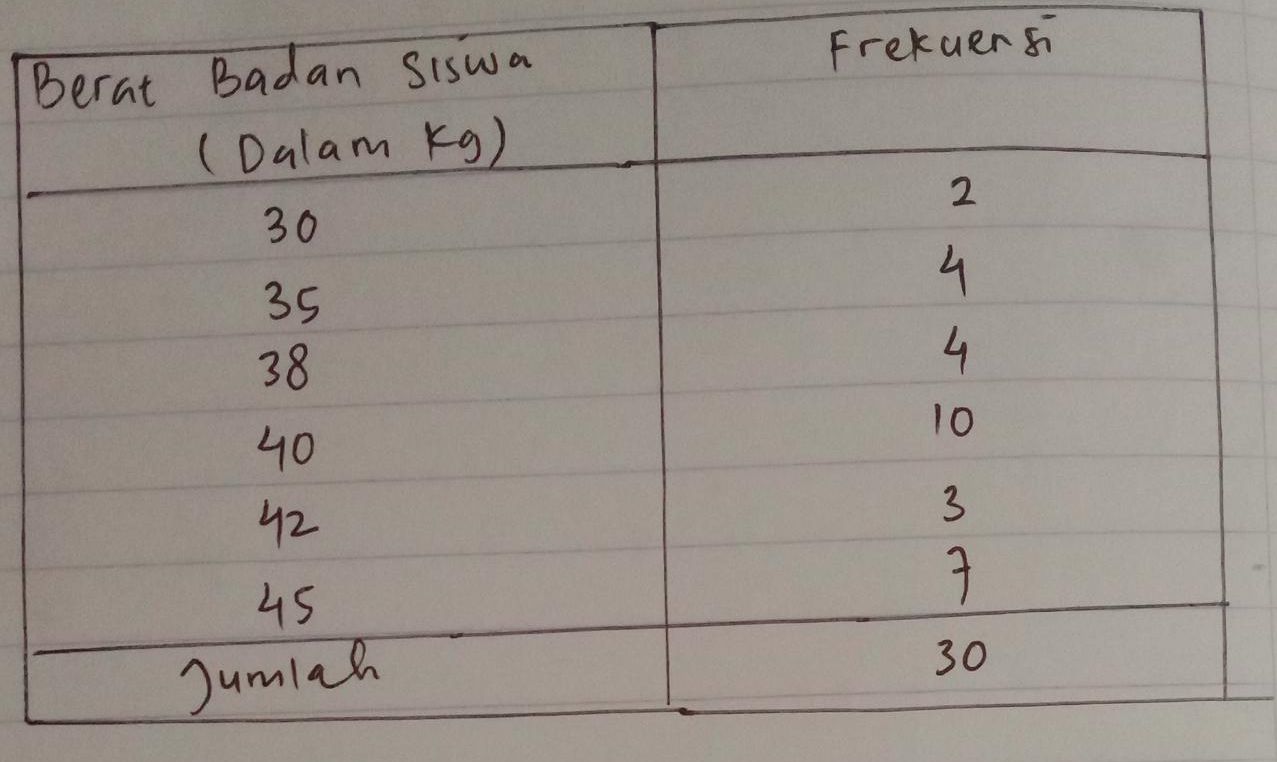 Berat Badan Siswa
(Dalam Kg)
Frekuensi
30 2
35 4
38 4
40 10
42 3
45 7
Jumlah 30